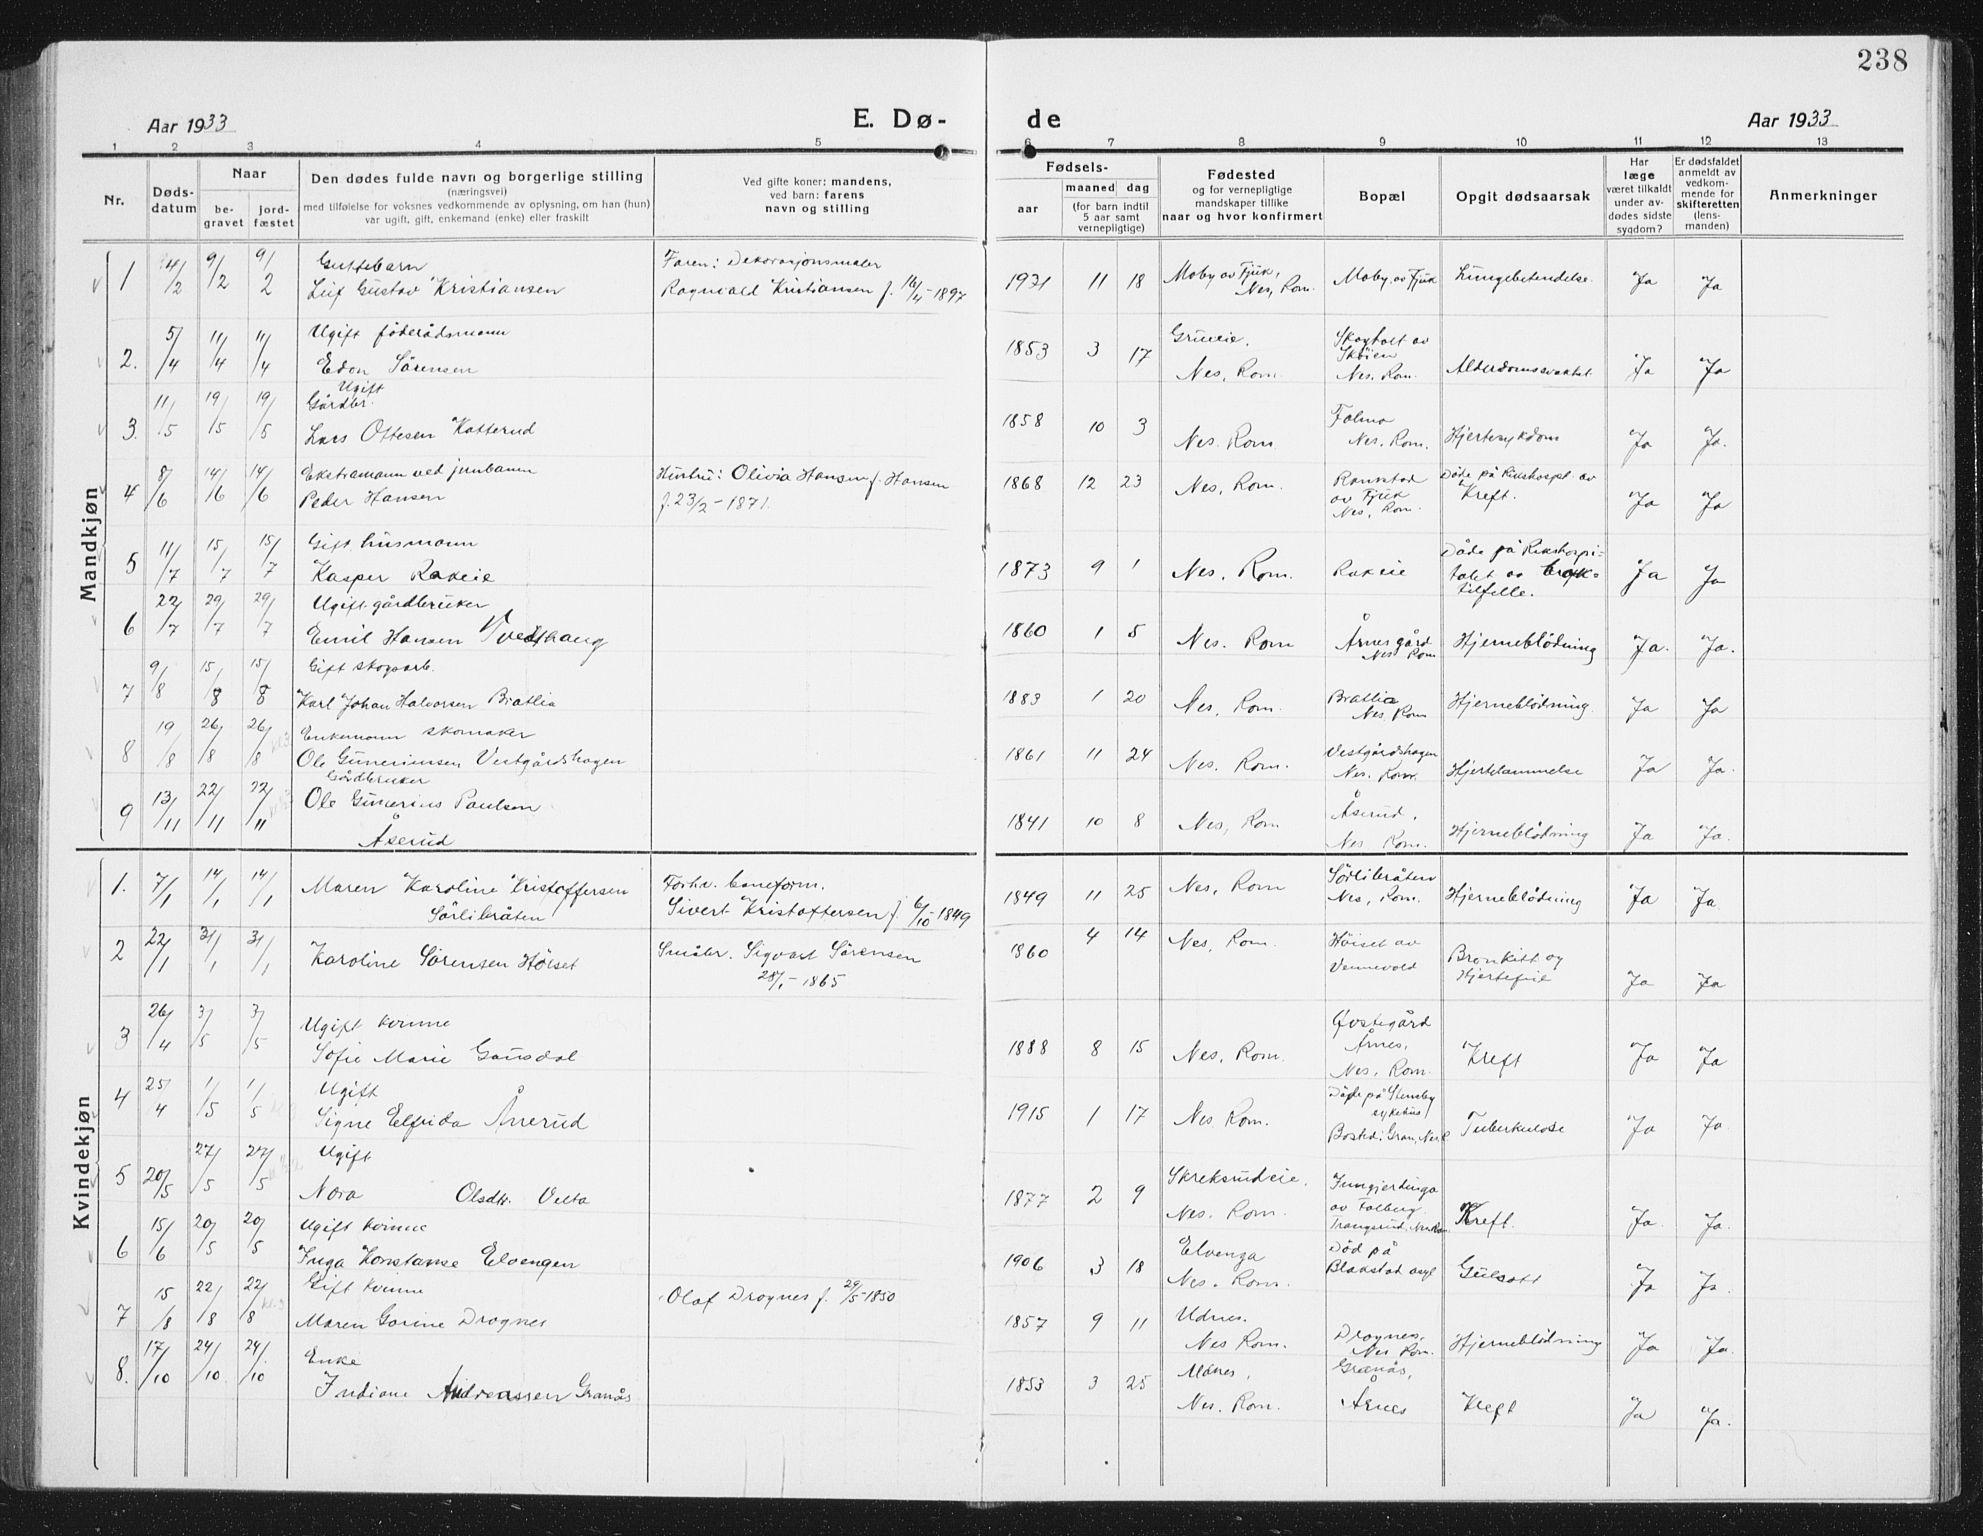 238
Aar 1933
E. Dø-
de
Aar 1933
1 2 3 4 5 6 7 8 9 10 11 12 13
Nr.
Døds-
datum
Naar
be-
gravet
jord-
fæstet
Den dødes fulde navn og borgerlige stilling
(næringsvei)
med tilføielse for voksnes vedkommende av oplysning, om han (hun)
var ugift, gift, enkemand (enke) eller fraskilt
Ved gifte koner: mandens,
ved barn: farens
navn og stilling
Fødsels-
aar
maaned dag
(for barn indtil
5 aar samt
vernepligtige)
Fødested
og for vernepligtige
mandskaper tillike
naar og hvor konfirmert
Bopæl
Opgit dødsaarsak
Har
læge
været tilkaldt
under av-
dødes sidste
sygdom?
Er dødsfaldet
anmeldt av
vedkom-
mende for
skifteretten
(lens-
manden)
Anmerkninger
Mandkjøn
1 4/2 9/2 9/2 Guttebarn
Leif Gustav Kristiansen
Faren: Dekorasjonsmaler
Ragnvald Kristiansen f. 16/4-1897
1931 11 18 Moby av Fjuk,
Nes, Rom. Moby av Fjuk Lungebetendelse Ja Ja
2. 5/4 11/4 11/4 Ugift føderådsmann
Edon Sørensen
1853 3 17 Grueeie,
Nes, Rom. Skogholt av
Skøien
Nes. Rom. Alderdomssvakhet Ja Ja
3. 11/5 19/5 19/5 Ugift
Gårdbr.
Lars Ottesen Katterud
1858 10 3 Nes. Rom. Folmo
Nes, Rom. Hjertesykdom Ja Ja.
4 8/6 14/6 14/6 Ekstramann ved jernbanen
Peder Hansen
Hustru: Olivia Hansen f. Hansen
f. 23/2-1871.
1868 12 23 Nes, Rom. Rankstad
av Fjuk
Nes, Rom. Døde på Rikshospt. av
Kreft. Ja Ja
5 11/7 15/7 15/7 Gift husmann
Kasper Rakeie
1873 9 1 Nes, Rom. Rakeie Døde på Rikshospi-
talet av brokk-
tilfelle. Ja Ja
6 22/7 29/7 29/7 Ugift gårdbruker
Emil Hansen Tvedthaug
1860 1 5 Nes. Rom Årnes gård
Nes Rom Hjerneblødning Ja. Ja.
7 9/8 15/8 15/8 Gift skogsarb.
Karl Johan Halvorsen Bratlia
1883 1 20 Nes, Rom. Bratlia
Nes, Rom Hjerneblødning. Ja Ja
8 19/8 26/8 26/8 Enkemann skomaker
Ole Gunerinsen Vestgårdshagen
1861 11 24 Nes. Rom. Vestgårdshagen
Nes. Rom. Hjertelammelse Ja Ja.
9 13/11 22/11 22/11 Gårdbruker
Ole Gunerius Paulsen
Åserud
1841 10 8 Nes, Rom Åserud,
Nes Rom. Hjerneblødning Ja Ja.
Kvindekjøn
1. 7/1 14/1 14/1 Maren Karoline Kristoffersen
Sørlibråten
Forhv. baneform.
Sivert Kristoffersen f. 6/10-1849
1849 11 25 Nes, Rom Sørlibråten
Nes, Rom. Hjerneblødning Ja Ja.
2 22/1 31/1 31/1 Karoline Sørensen Høiset
Småbr. Sigvart Sørensen
28/1-1865
1860 4 14 Nes, Rom. Høiset av
Vennevold Bronkitt og
Hjertefeil Ja Ja
3 26/4 3/5 3/5 Ugift kvinne
Sofie Marie Gausdal
1888 8 15 Nes, Rom. Øvstegård
Årnes,
Nes, Rom. Kreft Ja Ja
4 25/4 1/5 1/5 Ugift
Signe Elfrida Ånerud
1915 1 17 Nes Rom. Døde på Stensby
sykehus
Bosted: Gran, Nes R Tuberkulose Ja Ja.
5 20/5 27/5 27/5 Ugift
Nora Olsdtr. Velta
1877 2 9 Skreksrudeie,
Nes. Rom.
av Folberg
Trangsrud, Nes Rom. Kreft. Ja. Ja.
6 15/6 20/5 20/5 Ugift kvinne
Inga Konstanse Elvengen
1906 3 18 Elvenga
Nes. Rom. Død på
Blakstad asyl Gulsott Ja Ja.
7 15/8 22/8 22/8 Gift kvinne
Maren Gorine Drognes
Olaf Drognes f. 29/5-1850
1857 9 11 Udnes,
Nes Rom. Drognes,
Nes Rom. Hjerneblødning Ja Ja.
8. 17/10 24/10 24/10 Enke
Indiane Andreassen Granås
1853 3 25 Udnes,
Nes. Rom. Granås,
Årnes Kreft Ja Ja.